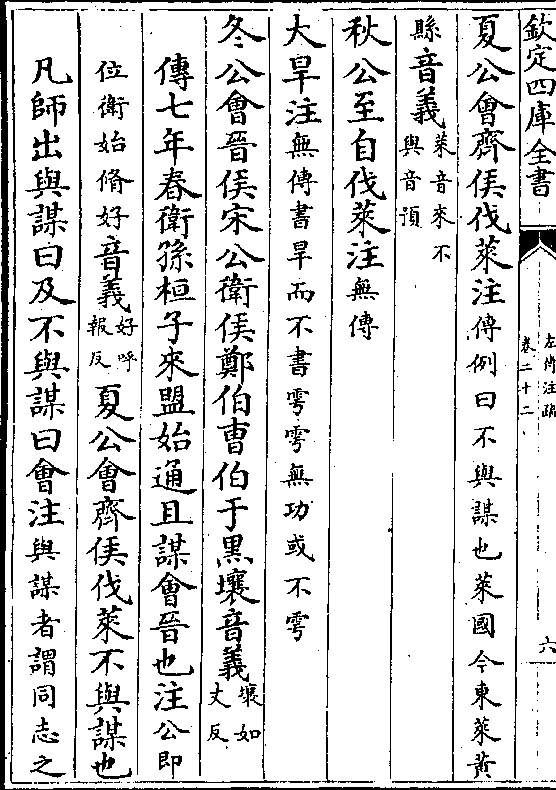 欽定四庫全書
左傳注疏
卷二十二
六
夏公會齊侯伐萊注傳例曰不與謀也萊國今東萊黃
縣音義萊音來不
與音預
秋公至自伐萊注無傳
大旱注無傳書旱而不書雩雩無功或不雩
冬公會晉侯宋公衛侯鄭伯曹伯于黑壤音義壤如
丈反
傳七年春衛孫桓子來盟始通且謀會晉也注公即
位衛始脩好音義好呼
報反夏公會齊侯伐萊不與謀也
凡師出與謀曰及不與謀曰會注與謀者謂同志之